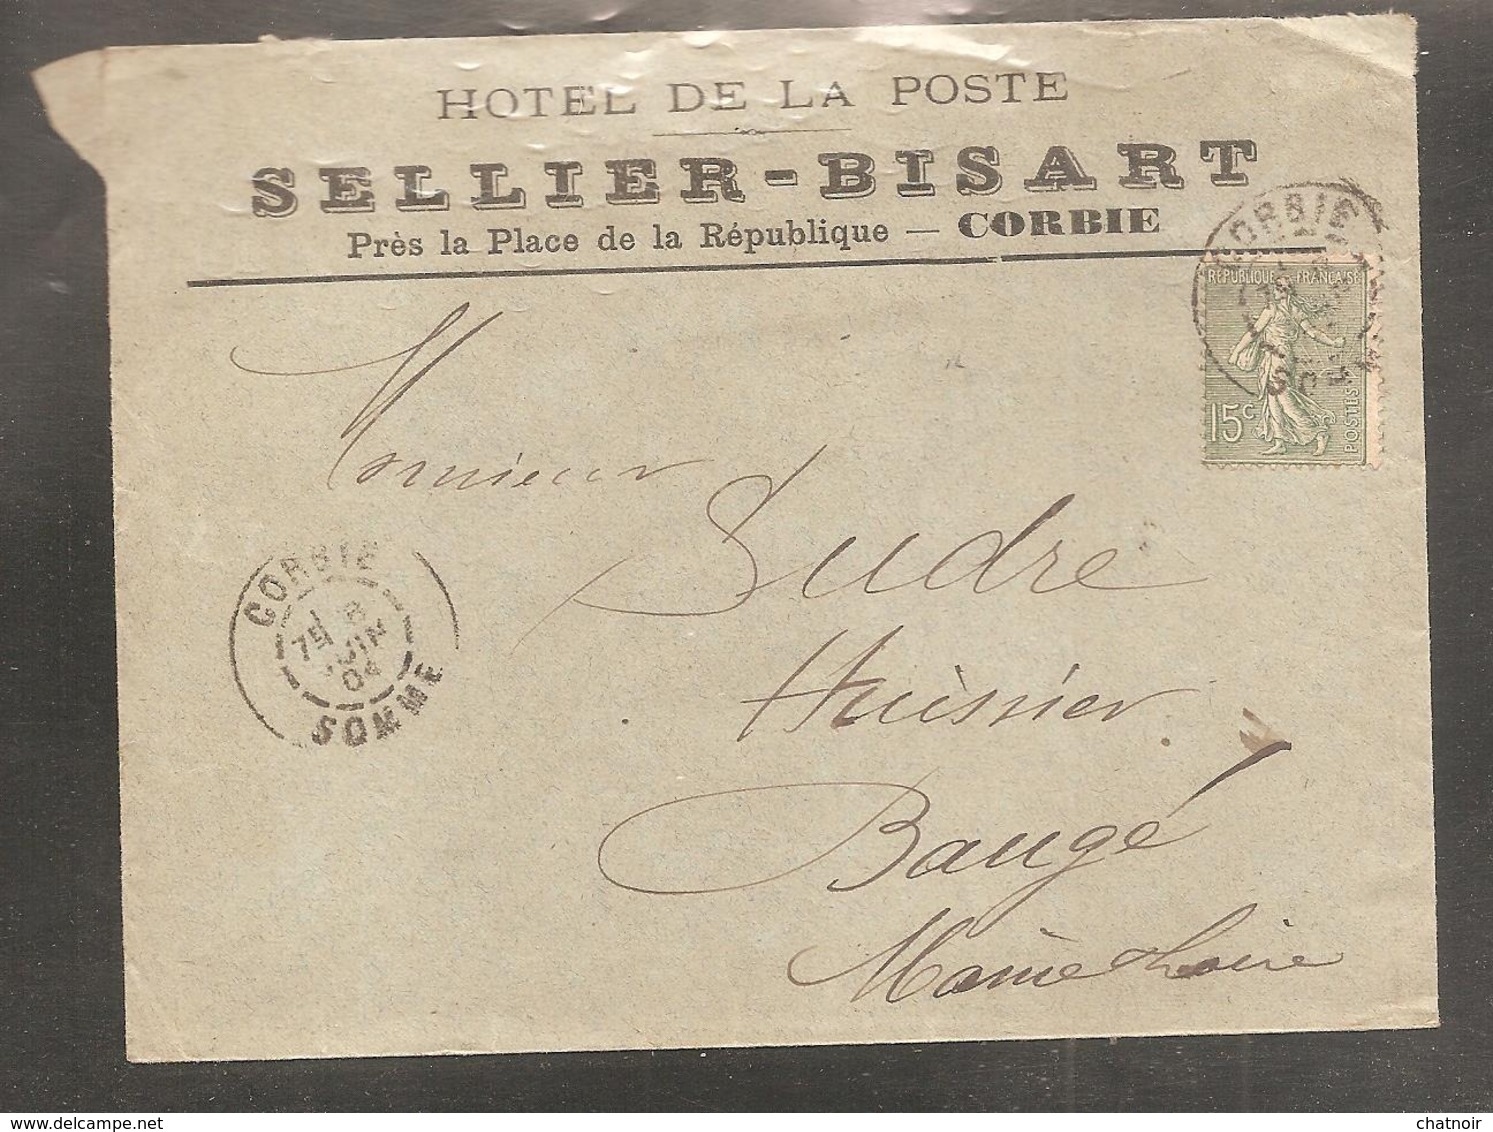 HOTEL DE LA POSTE
SELLIER-BISART
Près la Place de la République — CORBIE
CORBIE
SOMME
RÉPUBLIQUE FRANÇAISE
15c
POSTES
Monsieur
Sudre
Huissier
Baugé
Maine & Loire
CORBIE
8
JUIN
04
SOMME
delcampe.net
chatnoir